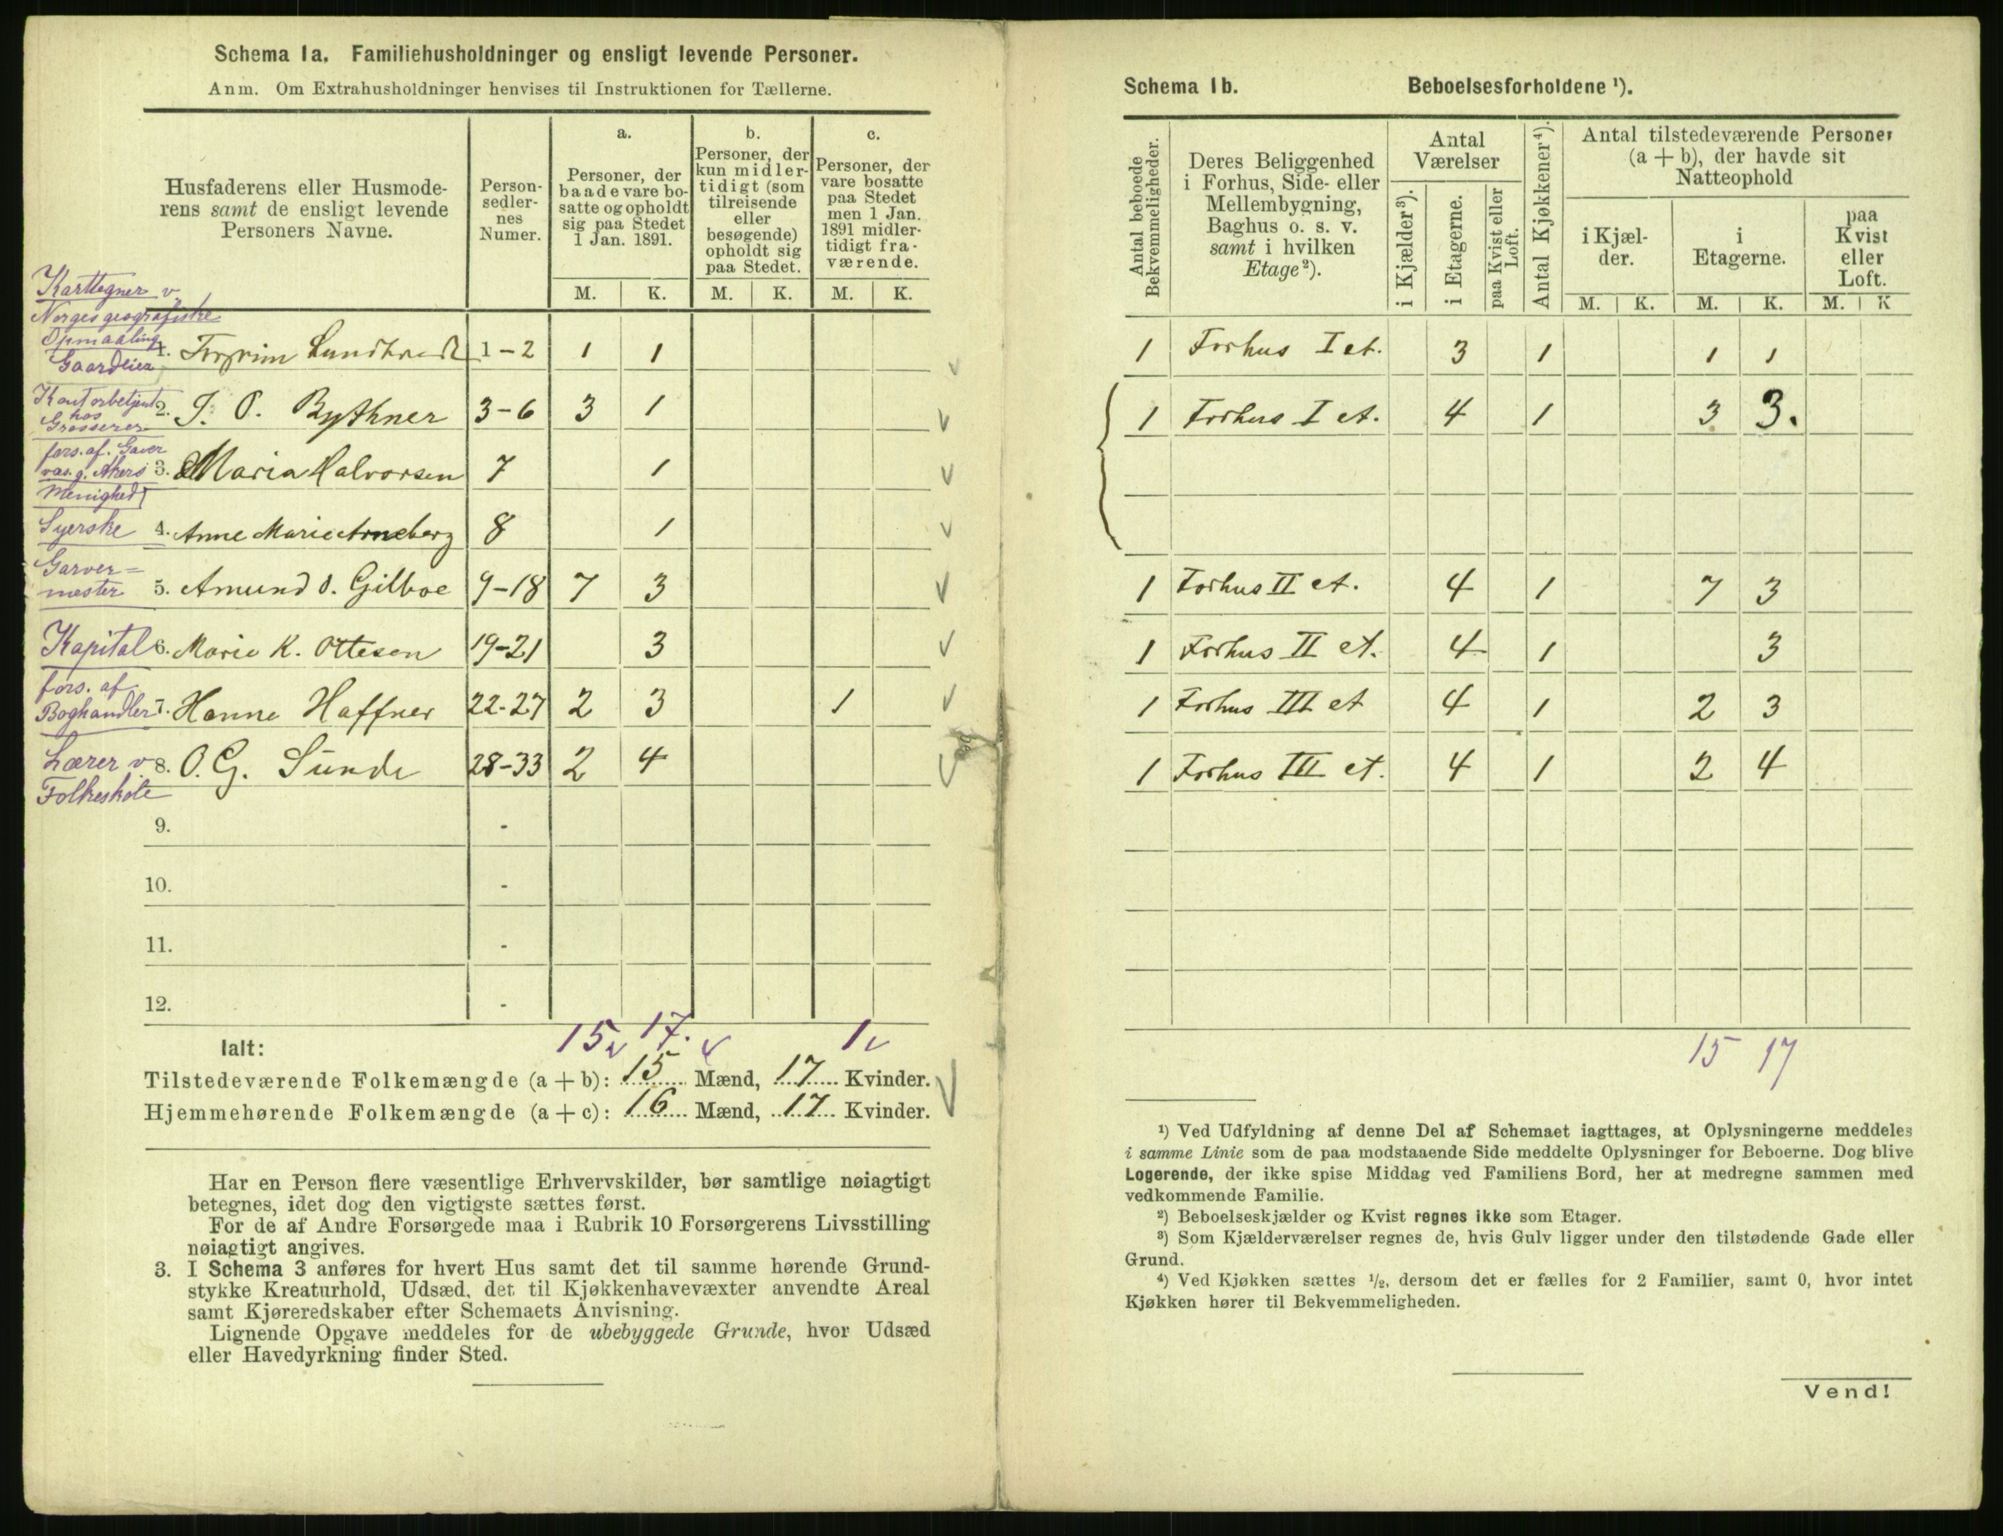 Schema 1a. Familiehusholdninger og ensligt levende Personer.
Anm. Om Extrahusholdninger henvises til Instruktionen for Tællerne.
Husfaderens eller Husmode-
rens samt de ensligt levende
Personers Navne.
Person-
sedler-
nes
Numer.
a.
Personer, der
baade vare bo-
satte og opholdt
sig paa Stedet
1 Jan. 1891.
b.
Personer, der
kun midler-
tidigt (som
tilreisende
eller
besøgende)
opholdt sig
paa Stedet.
c.
Personer, der
vare bosatte
paa Stedet
men 1 Jan.
1891 midler-
tidigt fra-
værende.
M. K. M. K. M. K.
Karttegner v
Norges geografiske
Opmaaling
Gaardeier
1. Torgrim Lundbredt 1-2 1 1
Kontorbetjent
hos
Grosserer
2. J. O. Bythner 3-6 3 1
fors. af. Gaver
Menighed
3. Maria Halvorsen 7 1
Syerske 4. Anne Marie Arneberg 8 1
Garver=
mester 5. Amund O. Gilboe 9-18 7 3
Kapital 6. Marie K. Ottesen 19-21 3
fors. af
Boghandler 7. Hanne Haffner 22-27 2 3 1
Lærer v 8. O. G. Sunde 28-33 2 4
Folkeskole
9. -
10. -
11. -
12. -
15 17. 1
Ialt:
Tilstedeværende Folkemængde (a + b): 15 Mænd, 17 Kvinder.
Hjemmehørende Folkemængde (a + c): 16 Mænd, 17 Kvinder.
Har en Person flere væsentlige Erhvervskilder, bør samtlige nøiagtigt
betegnes, idet dog den vigtigste sættes først.
For de af Andre Forsørgede maa i Rubrik 10 Forsørgerens Livsstilling
nøiagtigt angives.
3. I Schema 3 anføres for hvert Hus samt det til samme hørende Grund-
stykke Kreaturhold, Udsæd, det til Kjøkkenhavevæxter anvendte Areal
samt Kjøreredskaber efter Schemaets Anvisning.
Lignende Opgave meddeles for de ubebyggede Grunde, hvor Udsæd
eller Havedyrkning finder Sted.
Schema 1b. Beboelsesforholdene ¹).
Antal beboede
Bekvemmeligheder.
Deres Beliggenhed
i Forhus, Side- eller
Mellembygning,
Baghus o. s. v.
samt i hvilken
Etage²).
Antal
Værelser
i Kjælder³).
i Etagerne.
paa Kvist eller
Loft.
Antal Kjøkkener⁴).
Antal tilstedeværende Personer
(a + b), der havde sit
Natteophold
i Kjæl-
der.
i
Etagerne.
paa
Kvist
eller
Loft.
M. K. M. K. M. K
1 Forhus I et. 3 1 1 1
1 Forhus I et. 4 1 3 3.
1 Forhus II et. 4 1 7 3
1 Forhus II et. 4 1 3
1 Forhus III et 4 1 2 3
1 Forhus III et. 4 1 2 4
15 17
¹) Ved Udfyldning af denne Del af Schemaet iagttages, at Oplysningerne meddeles
i samme Linie som de paa modstaaende Side meddelte Oplysninger for Beboerne. Dog blive
Logerende, der ikke spise Middag ved Familiens Bord, her at medregne sammen med
vedkommende Familie.
²) Beboelseskjælder og Kvist regnes ikke som Etager.
³) Som Kjælderværelser regnes de, hvis Gulv ligger under den tilstødende Gade eller
Grund.
⁴) Ved Kjøkken sættes ½, dersom det er fælles for 2 Familier, samt 0, hvor intet
Kjøkken hører til Bekvemmeligheden.
Vend!